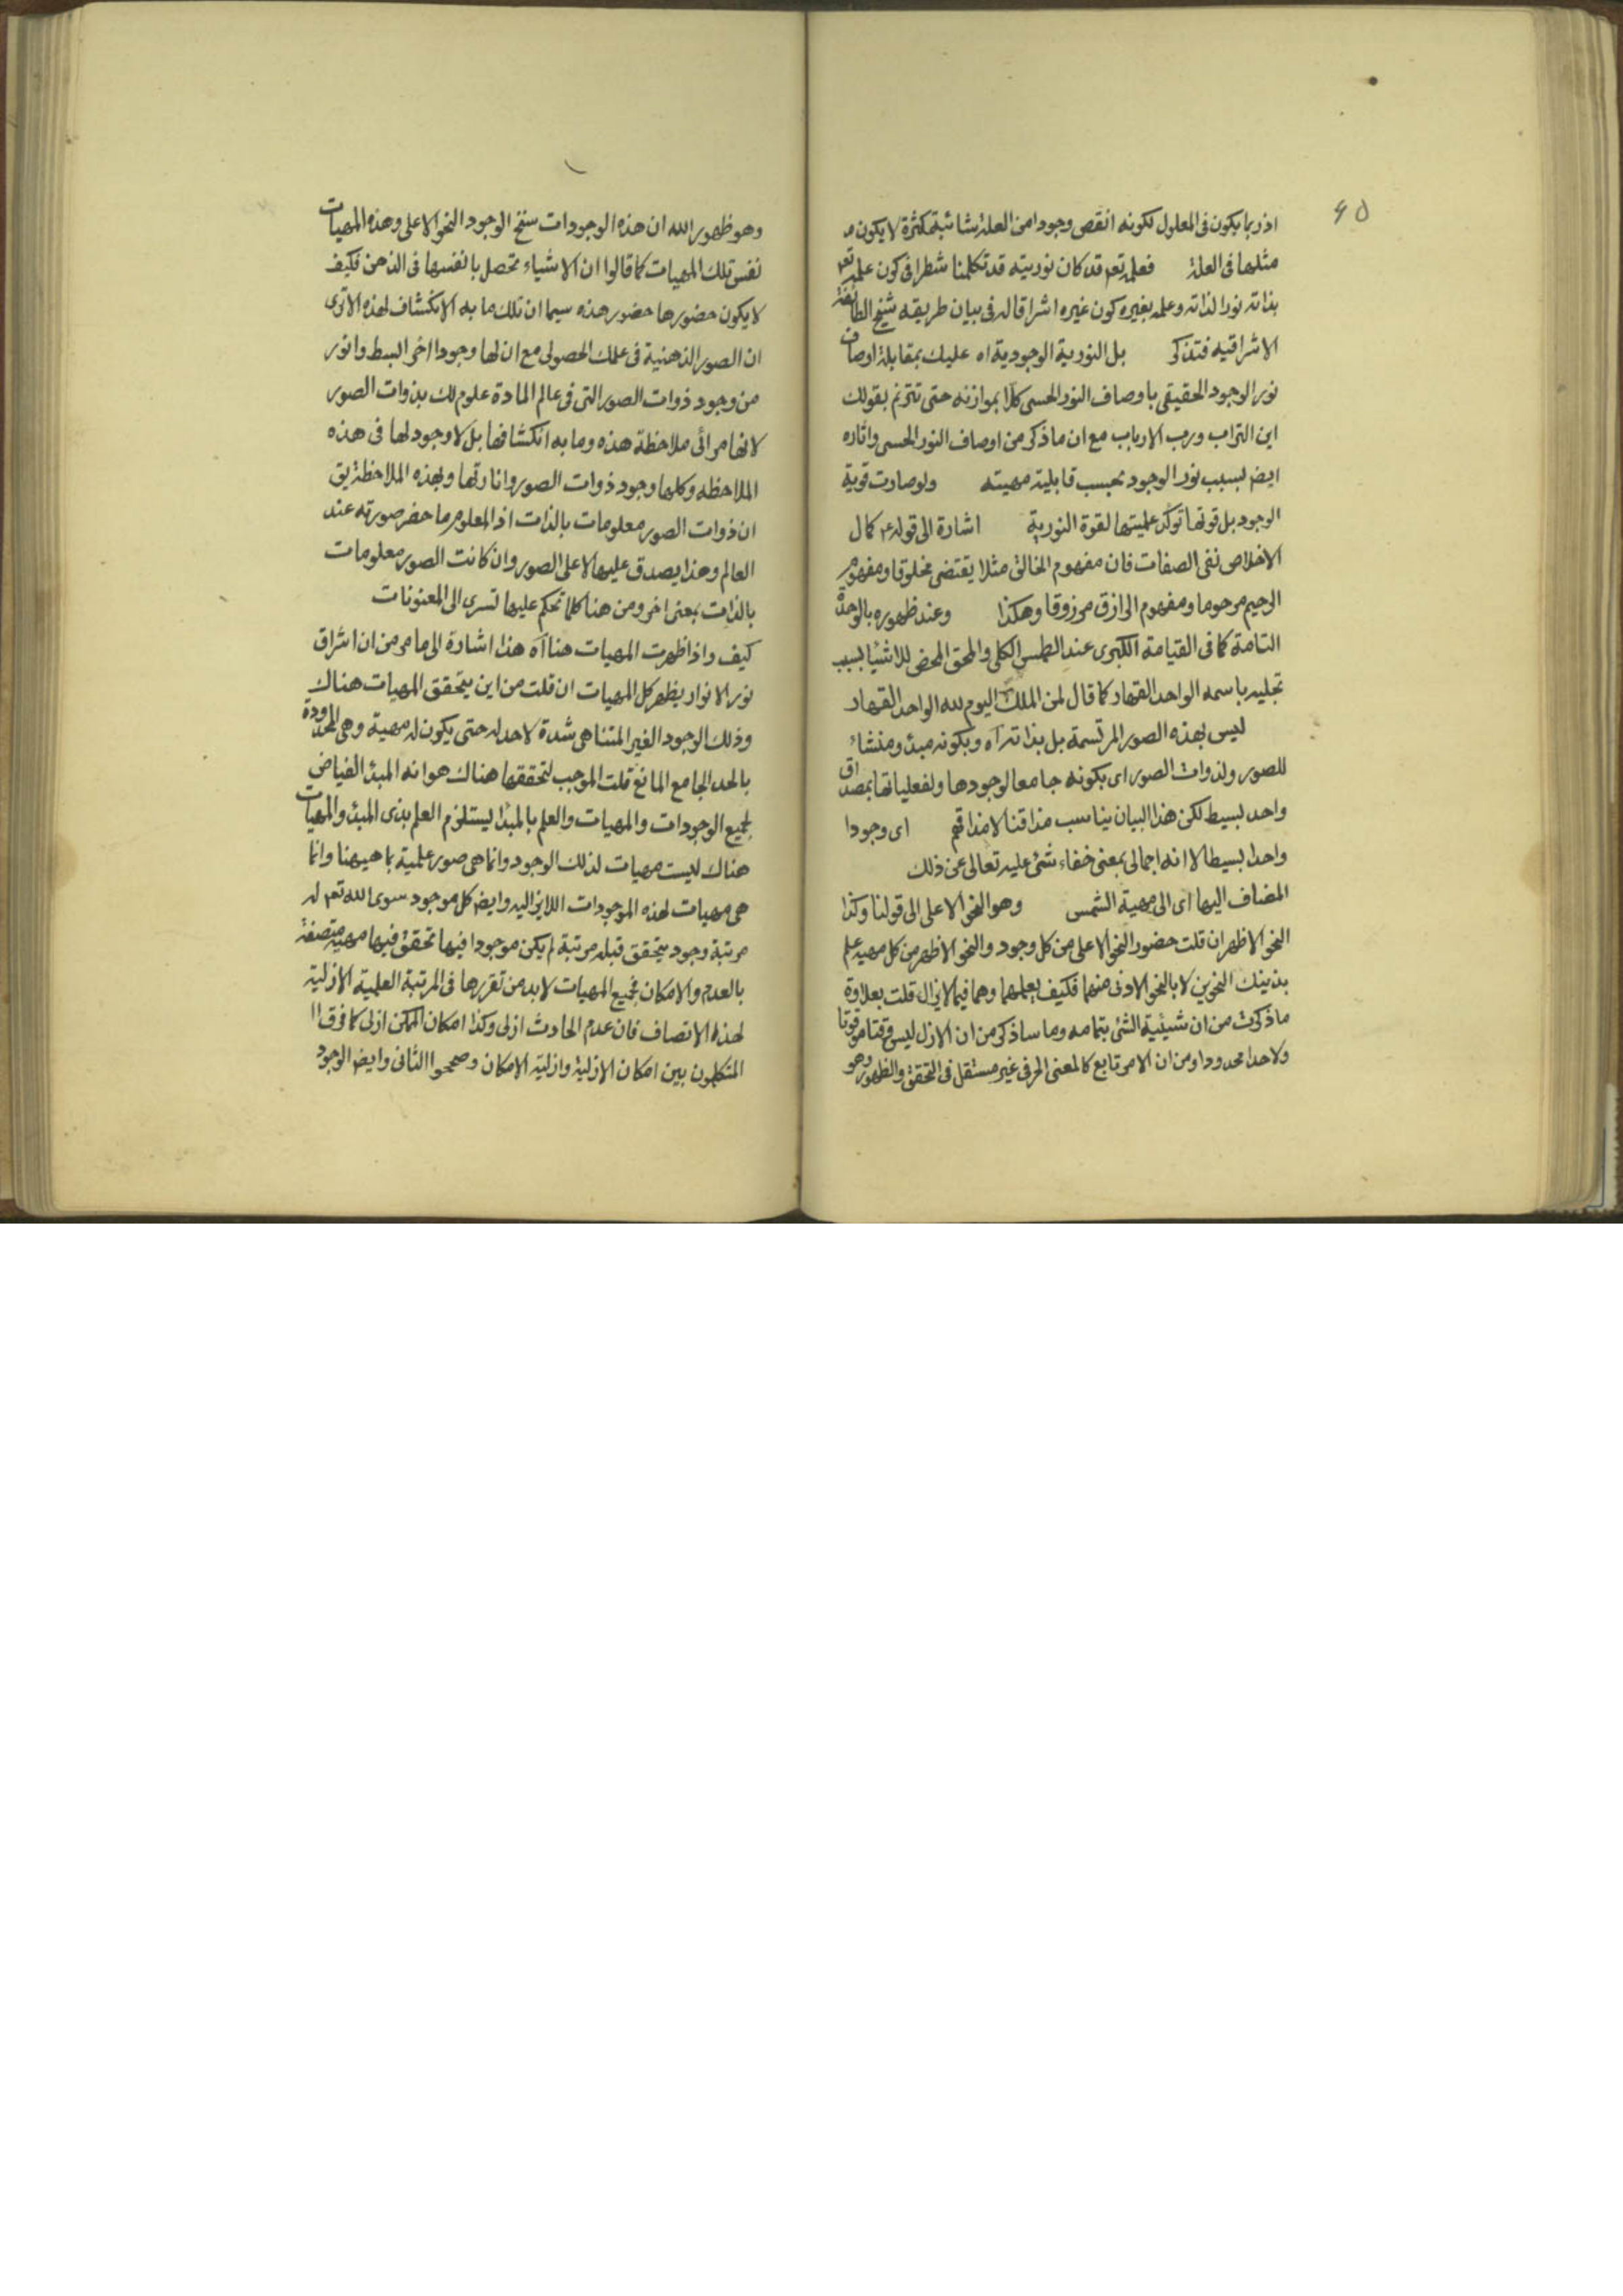 ٤٥
اذ ربما يكون فى المعلول لكونه انقص وجودا من العلة شائبة كثرة لا يكون
مثلها فى العلة فعلمه تعم قد كان نوريته قد تكلمنا شطرا فى كون علمه تعم
بذاته نورا لذاته وعلمه بغيره كون غيره اشراقا له فى بيان طريقه شيخ الطائفة
الاشراقيه فتذكر بل النورية الوجودية اه عليك بمقابلة اوصاف
نور الوجود الحقيقى باوصاف النور الحسى كلا بموازنه حتى تترنم بقولك
اين التراب ورب الارباب مع ان ما ذكر من اوصاف النور الحسى واثاره
ايضا بسبب نور الوجود بحسب قابلية مهيته ولو صارت قوية
الوجود بل قوتها توكد علميتها لقوة النورية اشارة الى قوله ع كمال
الاخلاص نفى الصفات فان مفهوم الخالق مثلا يقتضى مخلوقا ومفهوم
الرحيم مرحوما ومفهوم الرازق مرزوقا وهكذا وعند ظهوره بالوحدة
التامة كما فى القيامة الكبرى عند الطمس الكلى والمحق المحض للاشيا بسبب
تجليه باسمه الواحد القهار كما قال لمن الملك اليوم لله الواحد القهار
ليس بهذه الصور المرتسمة بل بذاته آه وبكونه مبدئ ومنشاء
للصور ولذوات الصور اى بكونه جامعا لوجودها ولفعلياتها بمصداق
واحد بسيط لكن هذا البيان يناسب مذاقنا لا مذاقهم اى وجودا
واحدا بسيطا لا انه اجمالى بمعنى خفاء شئ عليه تعالى عن ذلك
المضاف اليها اى الى مهية الشمس وهو النحو الاعلى الى قولنا وكذا
النحو الاظهر ان قلت حضور النحو الاعلى من كل وجود والنحو الاظهر من كل مهيه علم
بذينك النحوين لا بالنحو الادنى منهما فكيف يعلمهما وهما فيما لا يزال قلت بعلاوة
ما ذكرت من ان شيئية الشئ بتمامه وما ساذكر من ان الازل ليس وقتا موقوتا
ولا حدا محدودا ومن ان الامر تابع كالمعنى الحرفى غير مستقل فى التحقق والظهور وهو
وهو ظهور الله ان هذه الوجودات سنخ الوجود النحو الاعلى وهذه المهيات
نفس تلك المهيات كما قالوا ان الاشياء تحصل بانفسها فى الذهن فكيف
لا يكون حضورها حضور هذه سيما ان تلك ما به الانكشاف لهذه الا ترى
ان الصور الذهنية فى علمك الحصولى مع ان لها وجودا اخر ابسط وانور
من وجود ذوات الصور التى فى عالم المادة علوم لك بذوات الصور
لانها مرائى ملاحظة هذه وما به انكشافها بل لا وجود لها فى هذه
الملاحظه وكلها وجود ذوات الصور وانارتها وبهذه الملاحظة يق
ان ذوات الصور معلومات بالذات اذ المعلوم ما حضر صورته عند
العالم وهذا يصدق عليها لا على الصور وان كانت الصور معلومات
بالذات بمعنى اخر ومن هنا كلما تحكم عليها تسرى الى المعنونات
كيف واذا ظهرت المهيات هنا آه هذا اشارة الى ما مر من ان اشراق
نور الانوار يظهر كل المهيات ان قلت من اين يتحقق المهيات هناك
وذلك الوجود الغير المتناهى شدة لا حد له حتى يكون له مهية وهى المحدودة
بالحد الجامع المانع قلت الموجب لتحققها هناك هو انه المبدأ الفياض
لجميع الوجودات والمهيات والعلم بالمبدأ يستلزم العلم بذى المبدئ والمهيات
هناك ليست مهيات لذلك الوجود وانما هى صور علمية بما هيهنا وانما
هى مهيات لهذه الموجودات اللايزاليه وايضا كل موجود سوى الله تعم له
مرتبة وجود يتحقق قبله مرتبة لم يكن موجودا فيها تحقق فيها مهيه متصفة
بالعدم والامكان فجميع المهيات لابد من تقررها فى المرتبة العلمية الازلية
لهذه الاتصاف فان عدم الحادث ازلى وكذا امكان الممكن ازلى كما فرق
المتكلمون بين امكان الازلية وازلية الامكان وصححوا الثانى وايضا الوجود